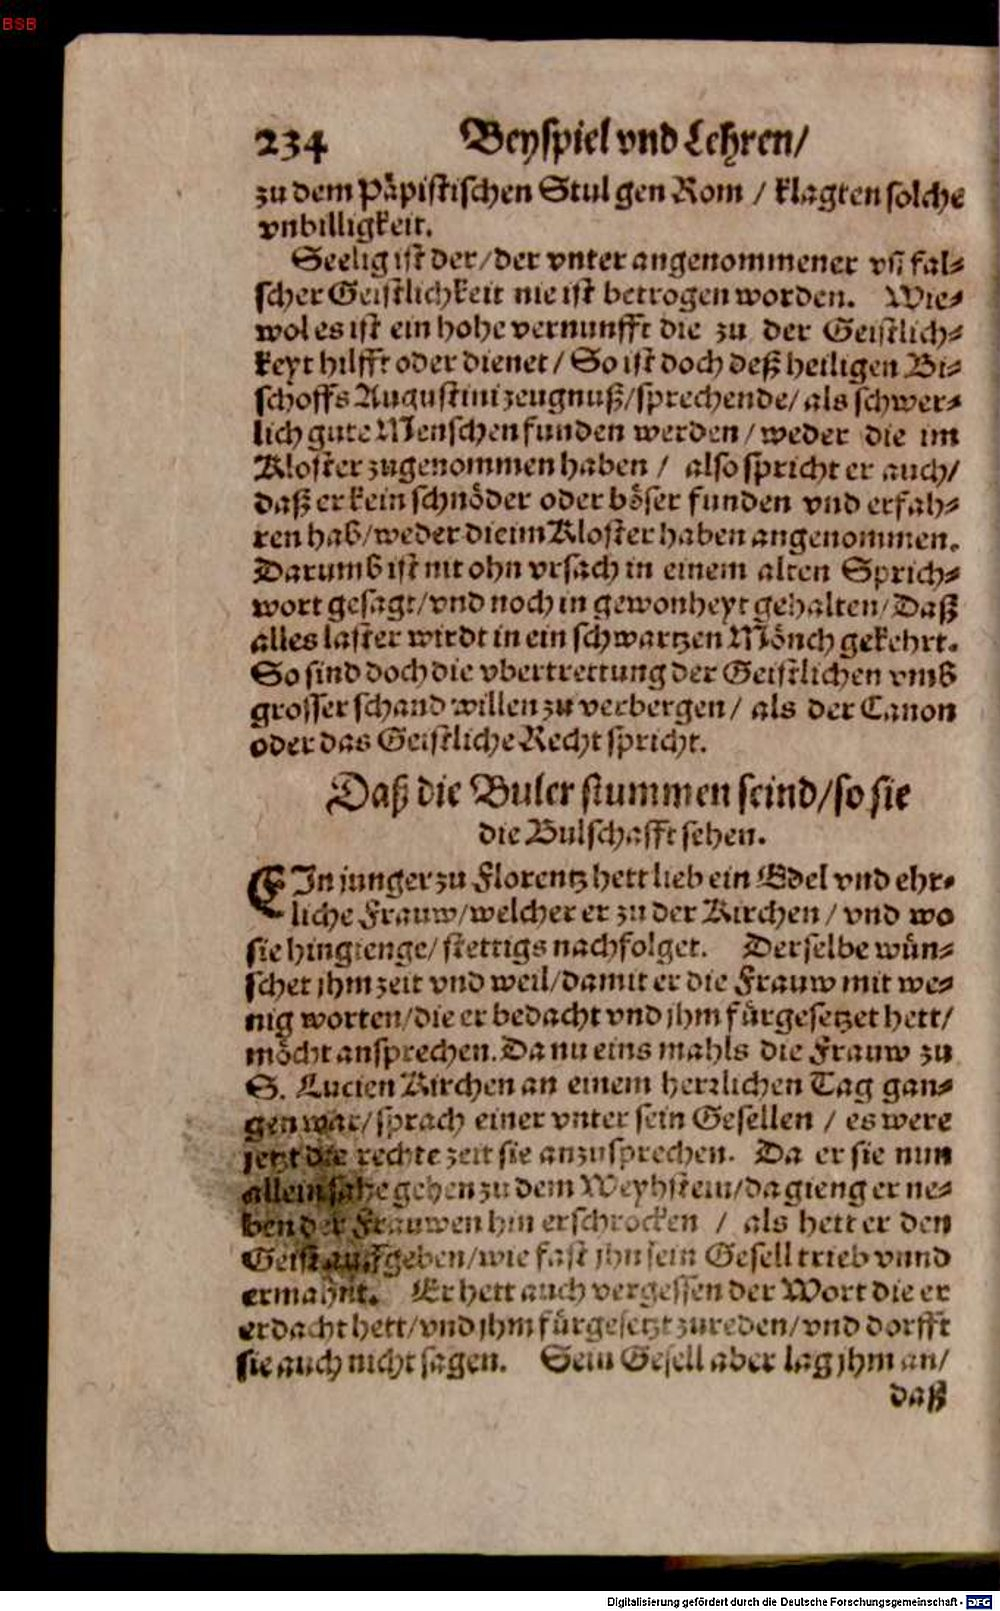 BSB
234 Beyspiel vnd Lehren/
zu dem Päpistischen Stul gen Rom / klagten solche
vnbilligkeit.
Seelig ist der/der vnter angenommener vñ fal-
scher Geistlichkeit nie ist betrogen worden. Wie-
wol es ist ein hohe vernunfft die zu der Geistlich-
keyt hilfft oder dienet / So ist doch deß heiligen Bi-
schoffs Augustini zeugnuß/sprechende/ als schwer-
lich gute Menschen funden werden / weder die im
Kloster zugenommen haben / also spricht er auch/
daß er kein schnöder oder böser funden vnd erfah-
ren hab/weder die im Kloster haben angenommen.
Darumb ist nit ohn vrsach in einem alten Sprich-
wort gesagt/vnd noch in gewonheyt gehalten/Daß
alles laster wirdt in ein schwartzen Mönch gekehrt.
So sind doch die vbertrettung der Geistlichen vmb
grosser schand willen zu verbergen / als der Canon
oder das Geistliche Recht spricht.
Daß die Buler stummen seind/so sie
die Bulschafft sehen.
EIn junger zu Florentz hett lieb ein Edel vnd ehr-
liche Frauw/welcher er zu der Kirchen / vnd wo
sie hingienge/ stettigs nachfolget. Derselbe wün-
schet jhm zeit vnd weil/damit er die Frauw mit we-
nig worten/die er bedacht vnd jhm fürgesetzet hett/
möcht ansprechen. Da nu eins mahls die Frauw zu
S. Lucien Kirchen an einem herrlichen Tag gan-
gen war/sprach einer vnter sein Gesellen / es were
jetzt die rechte zeit sie anzusprechen. Da er sie nun
allein sahe gehen zu dem Weyhstein/da gieng er ne-
ben der Frauwen hin erschrocken / als hett er den
Geist auffgeben/wie fast jhn sein Gesell trieb vnnd
ermahnt. Er hett auch vergessen der Wort die er
erdacht hett/vnd jhm fürgesetzt zureden/vnd dorfft
sie auch nicht sagen. Sein Gesell aber lag jhm an/
daß
Digitalisierung gefördert durch die Deutsche Forschungsgemeinschaft - DFG